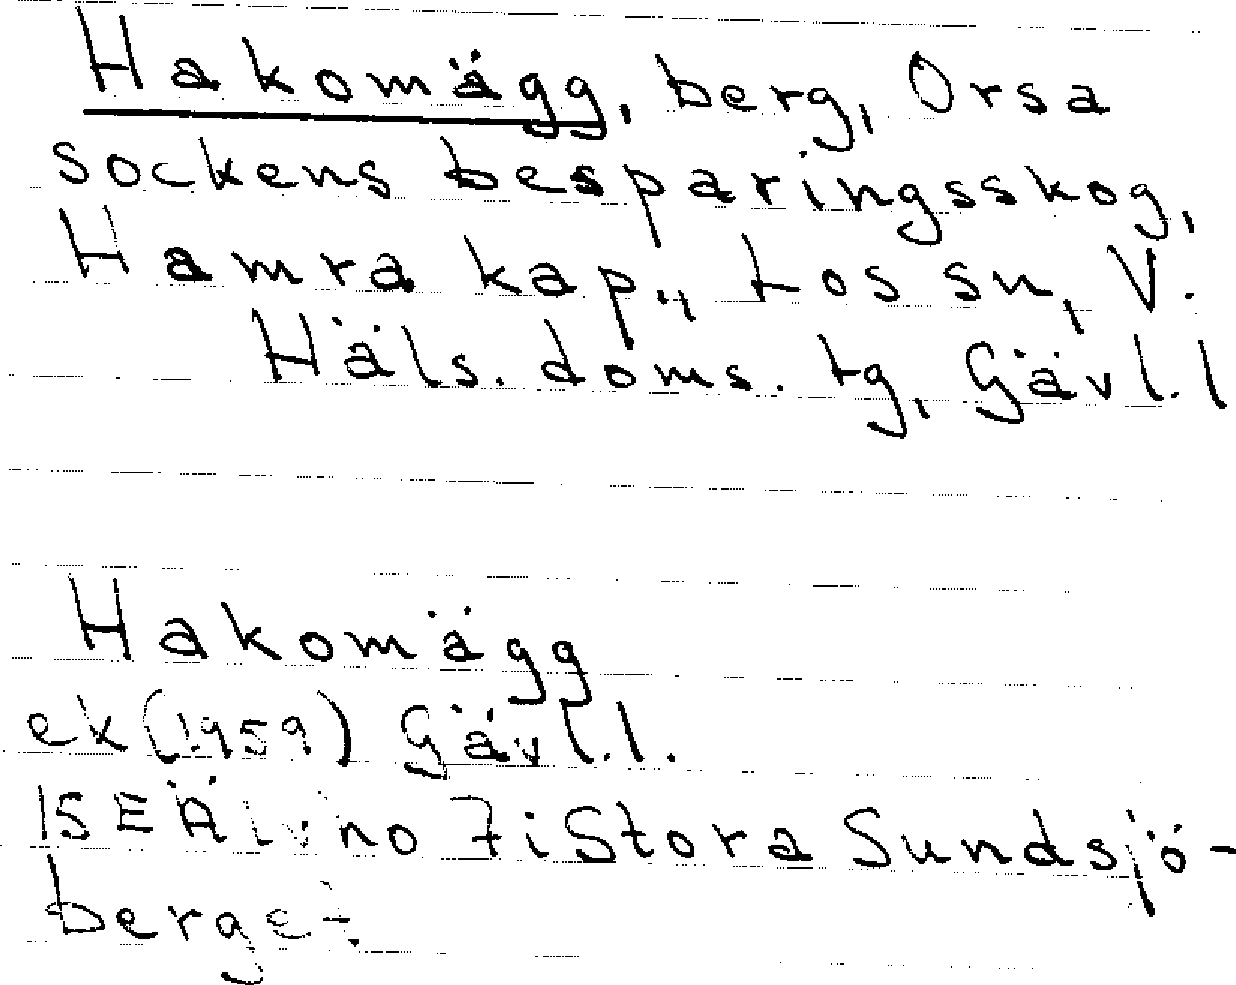 Hakomägg, berg, Orsa
sockens besparingsskog,
Hamra kap., Los sn, V.
Häls. doms. tg, Gävl.l
Hakomägg
ek (1959) Gävl.l.
no 7 i Stora Sundsjö-
berget.